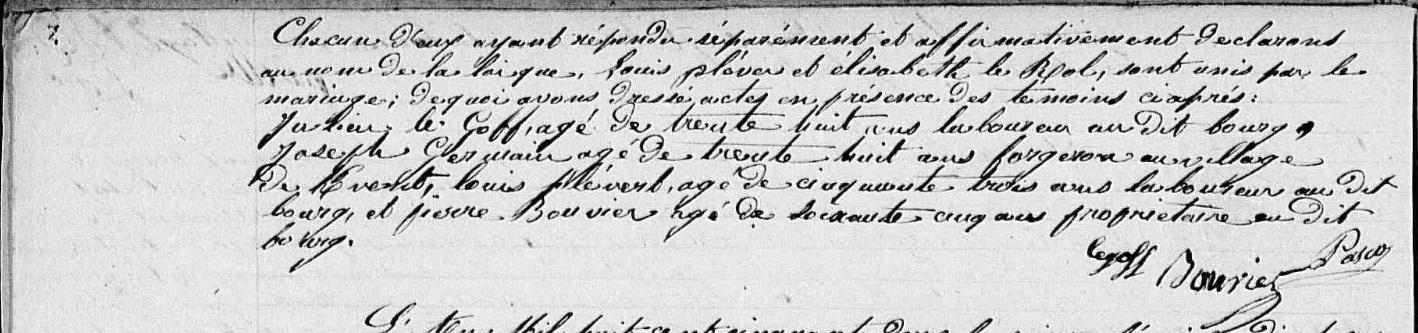 Chacun d'eux ayant répondu séparément et affirmativement declarons
au nom de la loi que, Louis pléver et élisabeth le Rol, sont unis par le
mariage; de quoi avons dressé actes en présence des temoins ciaprés:
Julien le Goff, agé de trente huit ans laboureur au dit bourg,
Joseph Germain agé de trente huit ans forgeron au village
de Kvent, louis plévert, agé de cinquante trois ans laboureur au dit
bourg, et pierre Bouvier agé de soixante cinq ans proprietaire au dit
bourg.
legoff Bouvier Pasco
L'An Mil huit cent cinquant